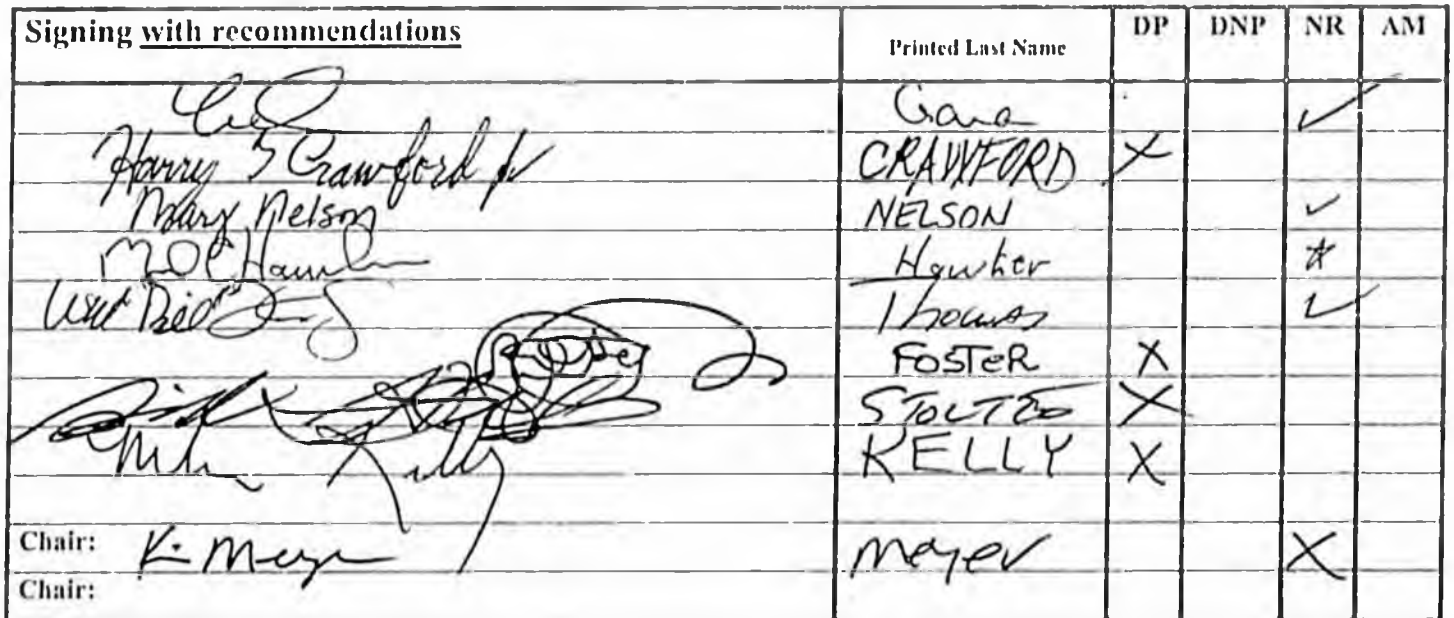 Signing with recommendations Printed Last Name DP DNP NR AM
Gara ✓
Harry S Crawford Jr CRAWFORD X
Mary Nelson NELSON ✓
Hawker
Thomas ✓
FOSTER X
STOLTZE X
Mike Kelly KELLY X
Chair: K. Meyer Meyer X
Chair: